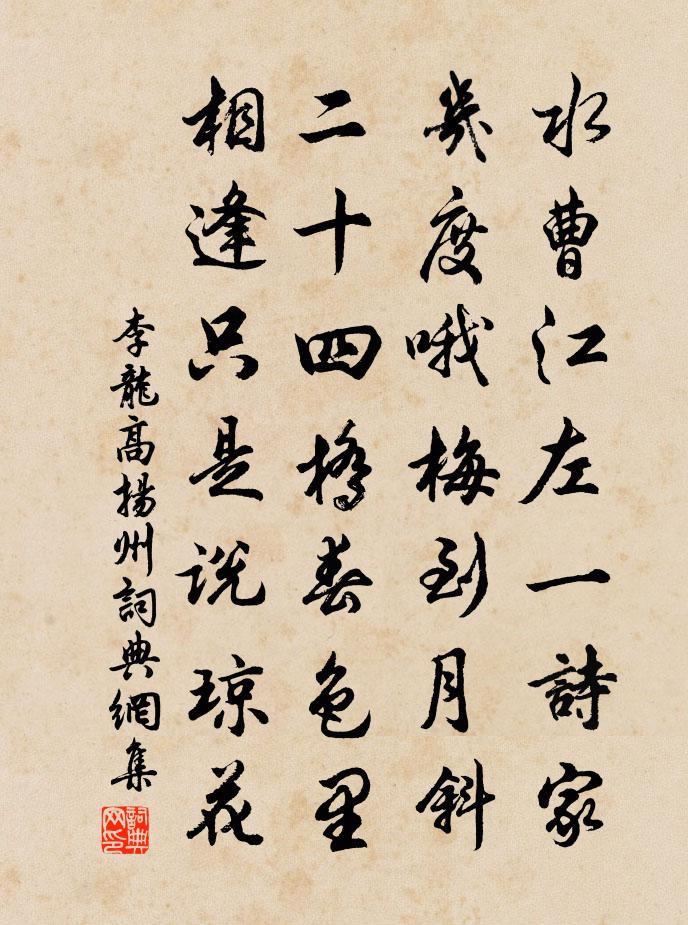 水曹江左一詩家
幾度哦梅到月斜
二十四橋春色里
相逢只是說琼花
李龍高揚州詞典網集
詞典网印